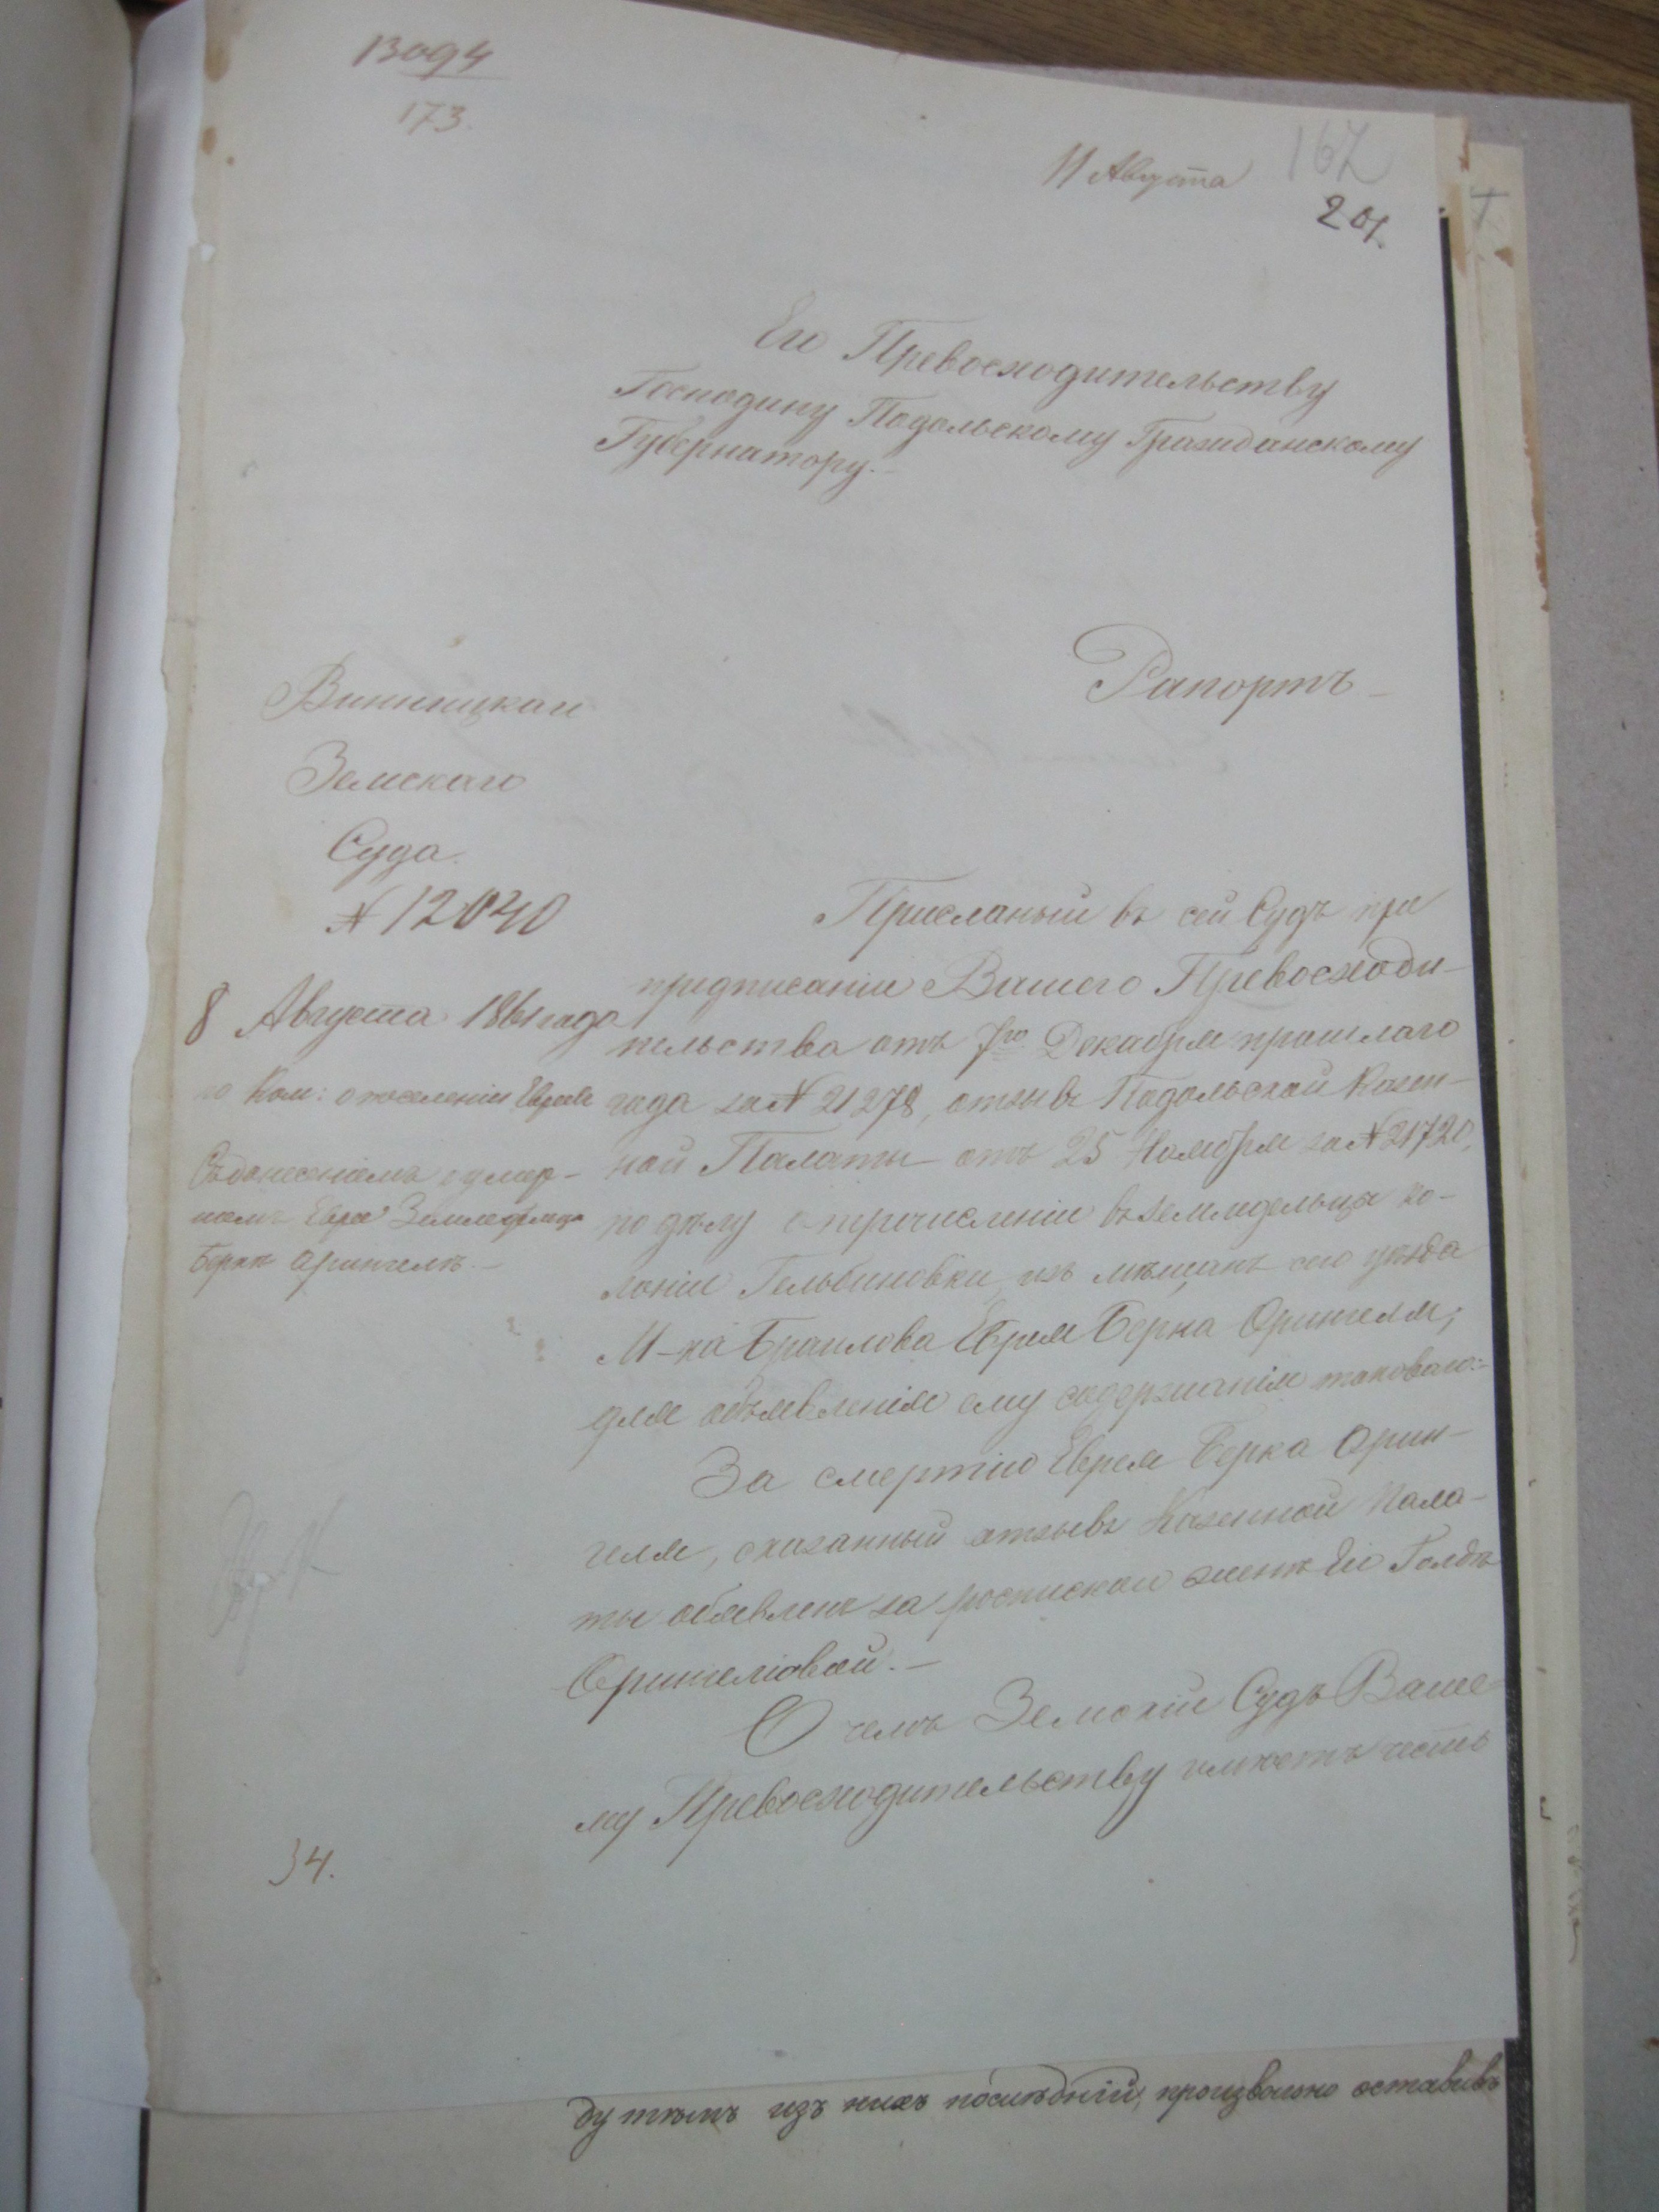 13094
173.
11 Августа
167
207.
Его Превосходительству
Господину Подольскому Гражданскому
Губернатору.-
Рапортъ-
Винницкаго
Земскаго
Суда.
№ 12040
8 Августа 1861 года
по Ком: о поселеніи Евреевъ
Съ донесеніемъ о умер-
шемъ Еврее Земледельце
Берке Орингеле.-
34.
Присланый въ сей Судъ при
предписаніи Вашего Превосходи-
тельства отъ 7го Декабря прошлаго
года за № 21278, отзывъ Подольской Казен-
ной Палаты отъ 25 Ноября за № 21720,
по делу о перечисленіи въ земледельцы ко-
лоніи Гельбиновки, изъ мещанъ сего уезда
М-ка Браилова Еврея Берка Орингеля,
для объявленія ему содержанія таковаго:-
За смертію Еврея Берка Орин-
геля, сказанный отзывъ Казенной Пала-
ты объявленъ за роспискою жене Его Голде
Орингелювой.-
О чемъ Земскій Судъ Ваше-
му Превосходительству имеетъ честь
ду темъ изъ нихъ последній, произвольно оставивъ